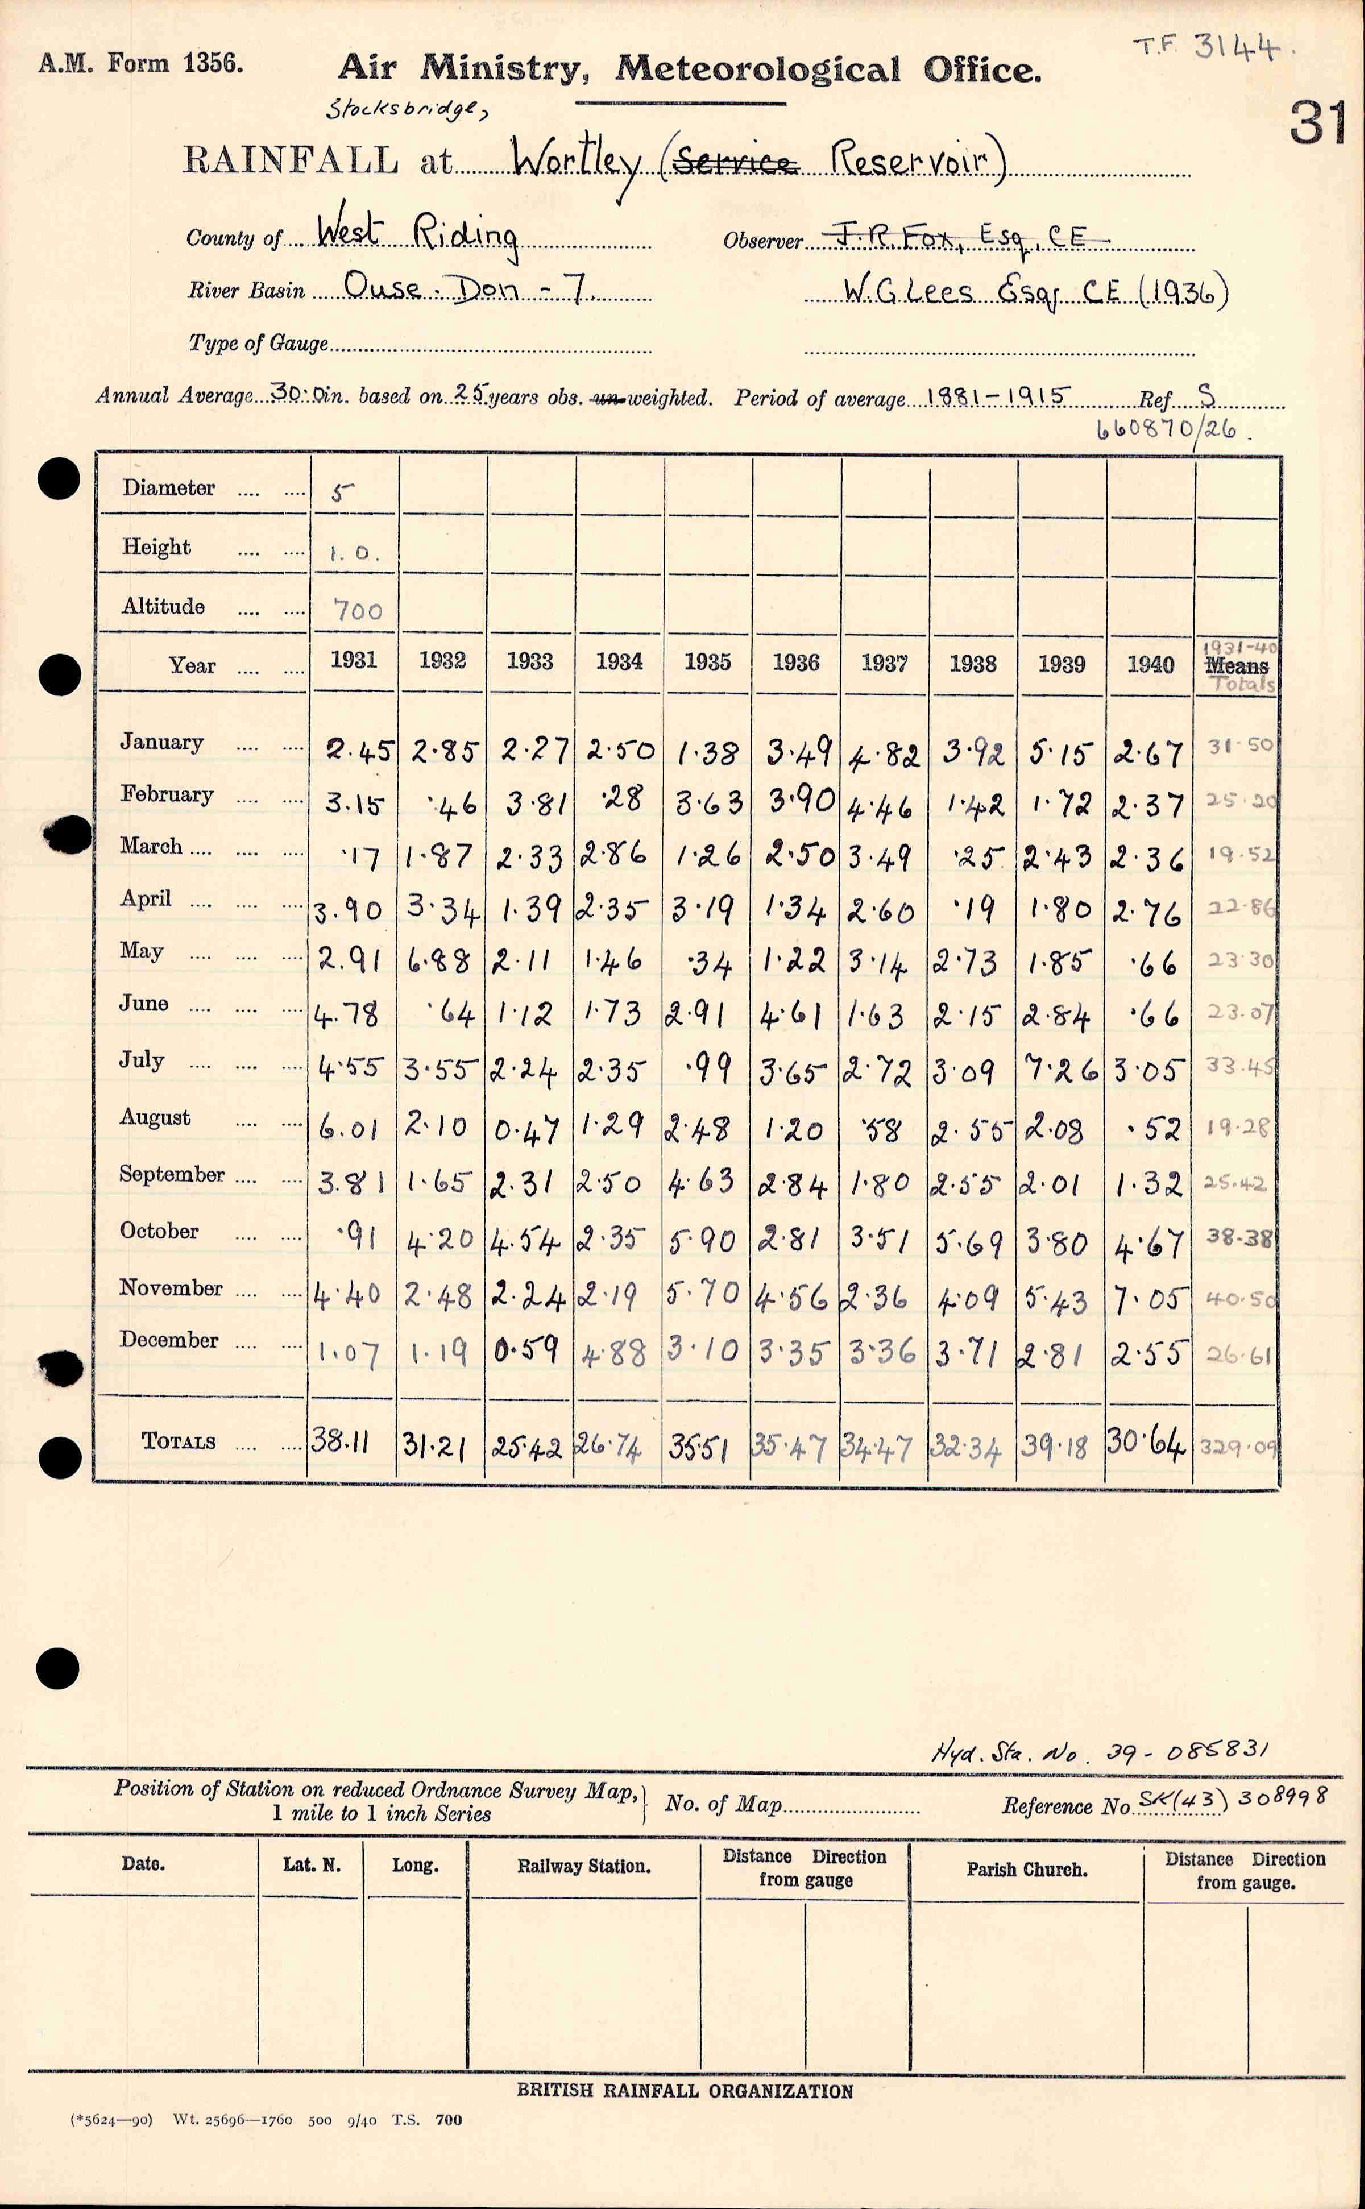 T.F. 3144.
A.M. Form 1356.
Air Ministry, Meteorological Office.
31
Stocksbridge,
RAINFALL at Wortley (Service Reservoir)
County of West Riding Observer J.R. Fox, Esq, CE
River Basin Ouse. Don - 7. W.G Lees Esq CE (1936)
Type of Gauge
Annual Average 30.0 in. based on 25 years obs. un-weighted. Period of average 1881-1915 Ref S
660870/26.
Diameter .... .... 5
Height .... .... 1.0.
Altitude .... .... 700
Year .... .... 1931 1932 1933 1934 1935 1936 1937 1938 1939 1940 1931-40 Means Totals
January .... .... 2.45 2.85 2.27 2.50 1.38 3.49 4.82 3.92 5.15 2.67 31.50
February .... .... 3.15 .46 3.81 .28 3.63 3.90 4.46 1.42 1.72 2.37 25.20
March .... .... .... .17 1.87 2.33 2.86 1.26 2.50 3.49 .25 2.43 2.36 19.52
April .... .... .... 3.90 3.34 1.39 2.35 3.19 1.34 2.60 .19 1.80 2.76 22.86
May .... .... .... 2.91 6.88 2.11 1.46 .34 1.22 3.14 2.73 1.85 .66 23.30
June .... .... .... 4.78 .64 1.12 1.73 2.91 4.61 1.63 2.15 2.84 .66 23.07
July .... .... .... 4.55 3.55 2.24 2.35 .99 3.65 2.72 3.09 7.26 3.05 33.45
August .... .... 6.01 2.10 0.47 1.29 2.48 1.20 .58 2.55 2.08 .52 19.28
September .... .... 3.81 1.65 2.31 2.50 4.63 2.84 1.80 2.55 2.01 1.32 25.42
October .... .... .91 4.20 4.54 2.35 5.90 2.81 3.51 5.69 3.80 4.67 38.38
November .... .... 4.40 2.48 2.24 2.19 5.70 4.56 2.36 4.09 5.43 7.05 40.50
December .... .... 1.07 1.19 0.59 4.88 3.10 3.35 3.36 3.71 2.81 2.55 26.61
TOTALS .... .... 38.11 31.21 25.42 26.74 35.51 35.47 34.47 32.34 39.18 30.64 329.09
Hyd. Sta. No. 39 - 085831
Position of Station on reduced Ordnance Survey Map, 1 mile to 1 inch Series } No. of Map Reference No. SK(43) 308998
Date. Lat. N. Long. Railway Station. Distance Direction from gauge Parish Church. Distance Direction from gauge.
BRITISH RAINFALL ORGANIZATION
(*5624—90) Wt. 25696—1760 500 9/40 T.S. 700